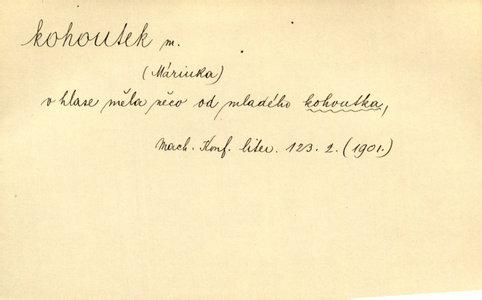 kohoutek m.
(Márinka)
v hlase měla něco od mladého kohoutka,
Mach. Konf. liter. 123. 2. (1901.)